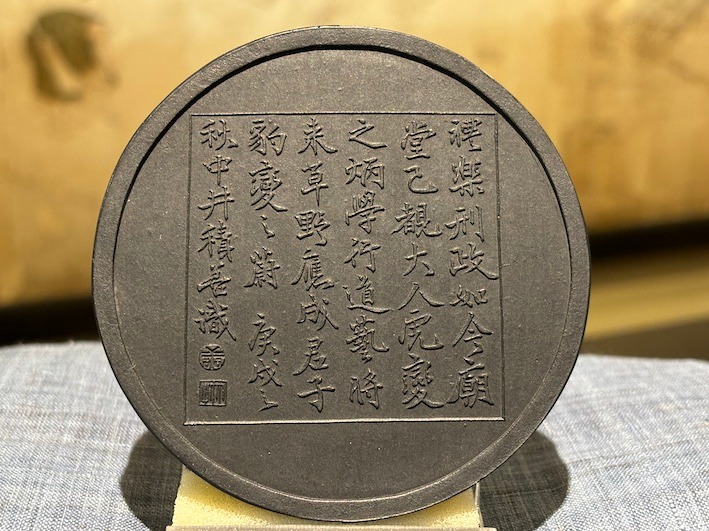 禮樂刑政如今廟
堂已觀大人虎變
之炳學行道藝將
来草野應成君子
豹變之蔚 庚戌之
秋中井積善識